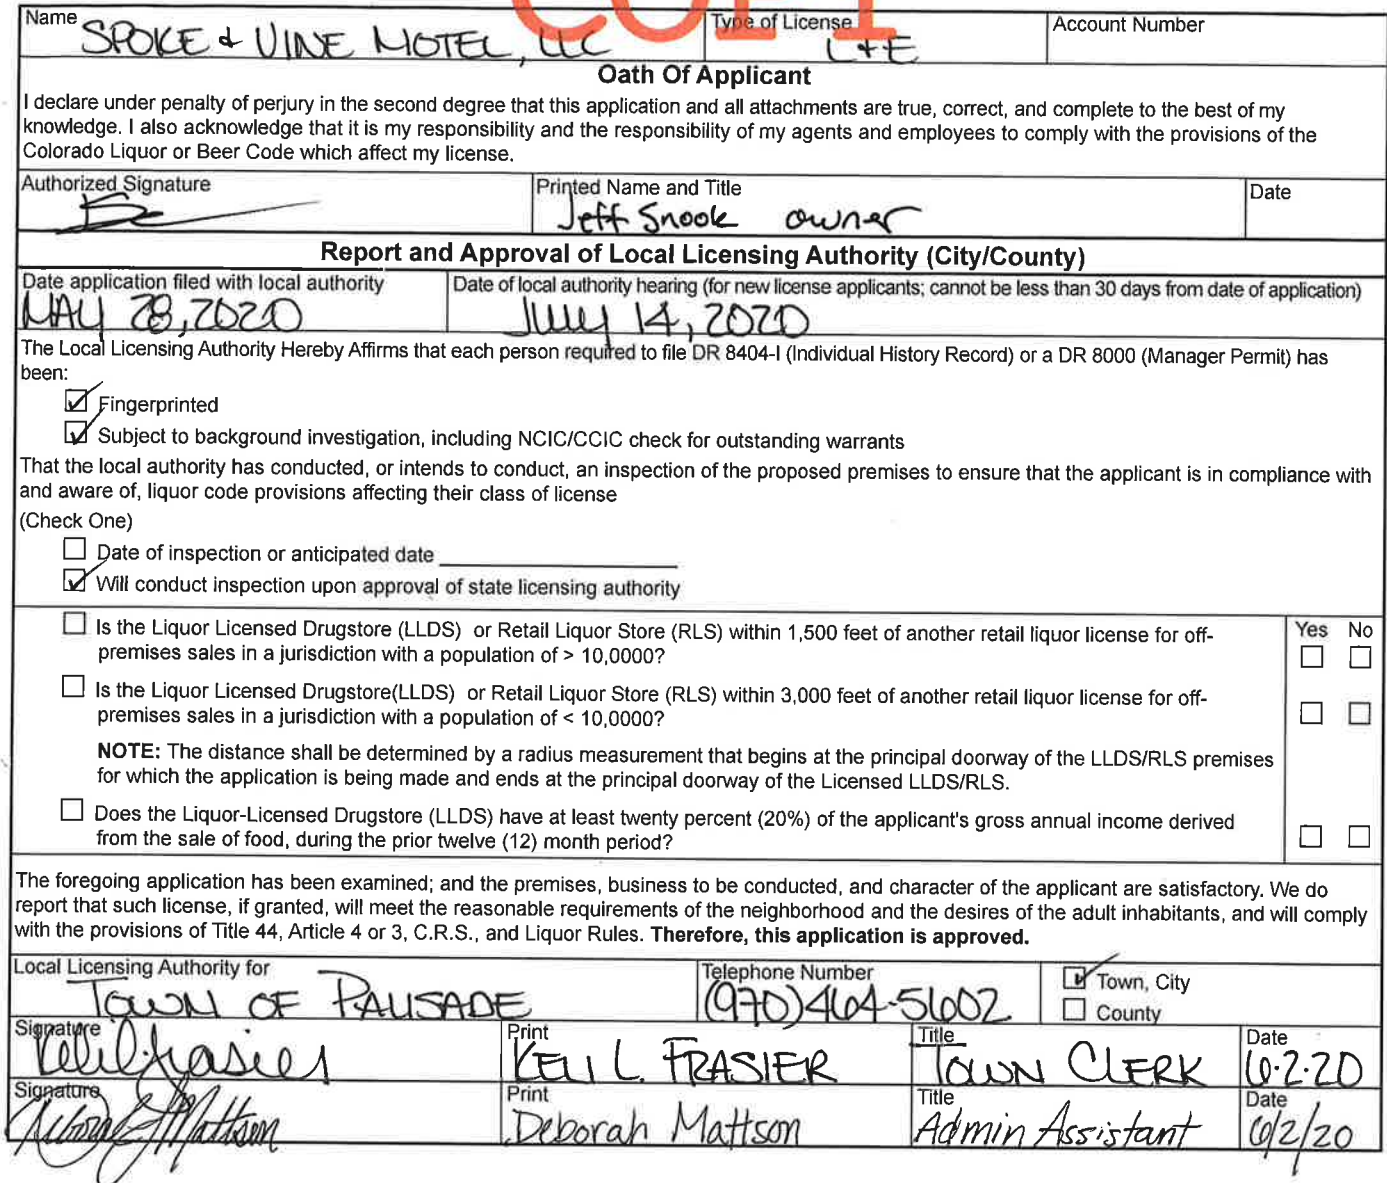 COPY
Name Type of License Account Number
SPOKE & VINE MOTEL, LLC L+E
Oath Of Applicant
I declare under penalty of perjury in the second degree that this application and all attachments are true, correct, and complete to the best of my
knowledge. I also acknowledge that it is my responsibility and the responsibility of my agents and employees to comply with the provisions of the
Colorado Liquor or Beer Code which affect my license.
Authorized Signature Printed Name and Title Date
Jeff Snook owner
Report and Approval of Local Licensing Authority (City/County)
Date application filed with local authority Date of local authority hearing (for new license applicants; cannot be less than 30 days from date of application)
MAY 28, 2020 July 14, 2020
The Local Licensing Authority Hereby Affirms that each person required to file DR 8404-I (Individual History Record) or a DR 8000 (Manager Permit) has
been:
Fingerprinted
Subject to background investigation, including NCIC/CCIC check for outstanding warrants
That the local authority has conducted, or intends to conduct, an inspection of the proposed premises to ensure that the applicant is in compliance with
and aware of, liquor code provisions affecting their class of license
(Check One)
Date of inspection or anticipated date
Will conduct inspection upon approval of state licensing authority
Is the Liquor Licensed Drugstore (LLDS) or Retail Liquor Store (RLS) within 1,500 feet of another retail liquor license for off- Yes No
premises sales in a jurisdiction with a population of > 10,0000?
Is the Liquor Licensed Drugstore(LLDS) or Retail Liquor Store (RLS) within 3,000 feet of another retail liquor license for off-
premises sales in a jurisdiction with a population of < 10,0000?
NOTE: The distance shall be determined by a radius measurement that begins at the principal doorway of the LLDS/RLS premises
for which the application is being made and ends at the principal doorway of the Licensed LLDS/RLS.
Does the Liquor-Licensed Drugstore (LLDS) have at least twenty percent (20%) of the applicant's gross annual income derived
from the sale of food, during the prior twelve (12) month period?
The foregoing application has been examined; and the premises, business to be conducted, and character of the applicant are satisfactory. We do
report that such license, if granted, will meet the reasonable requirements of the neighborhood and the desires of the adult inhabitants, and will comply
with the provisions of Title 44, Article 4 or 3, C.R.S., and Liquor Rules. Therefore, this application is approved.
Local Licensing Authority for Telephone Number Town, City
TOWN OF PALISADE (970)464-5602 County
Signature Print Title Date
Keli L. Frasier KELI L. FRASIER TOWN CLERK 6.2.20
Signature Print Title Date
Deborah Mattson Deborah Mattson Admin Assistant 6/2/20